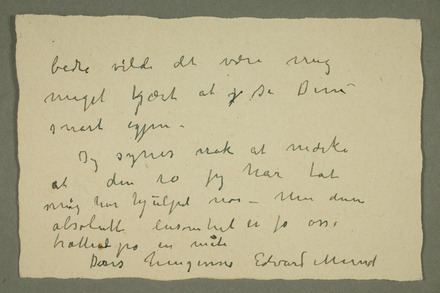 bedre vilde det være mig
meget kjært at se Dem
snart igjen –
Jeg synes nok at mærke
at den ro jeg har tat
mig har hjulpet noe – Men den
absolutte ensomhet er jo også
på en måte
Deres hengivne Edvard Munch